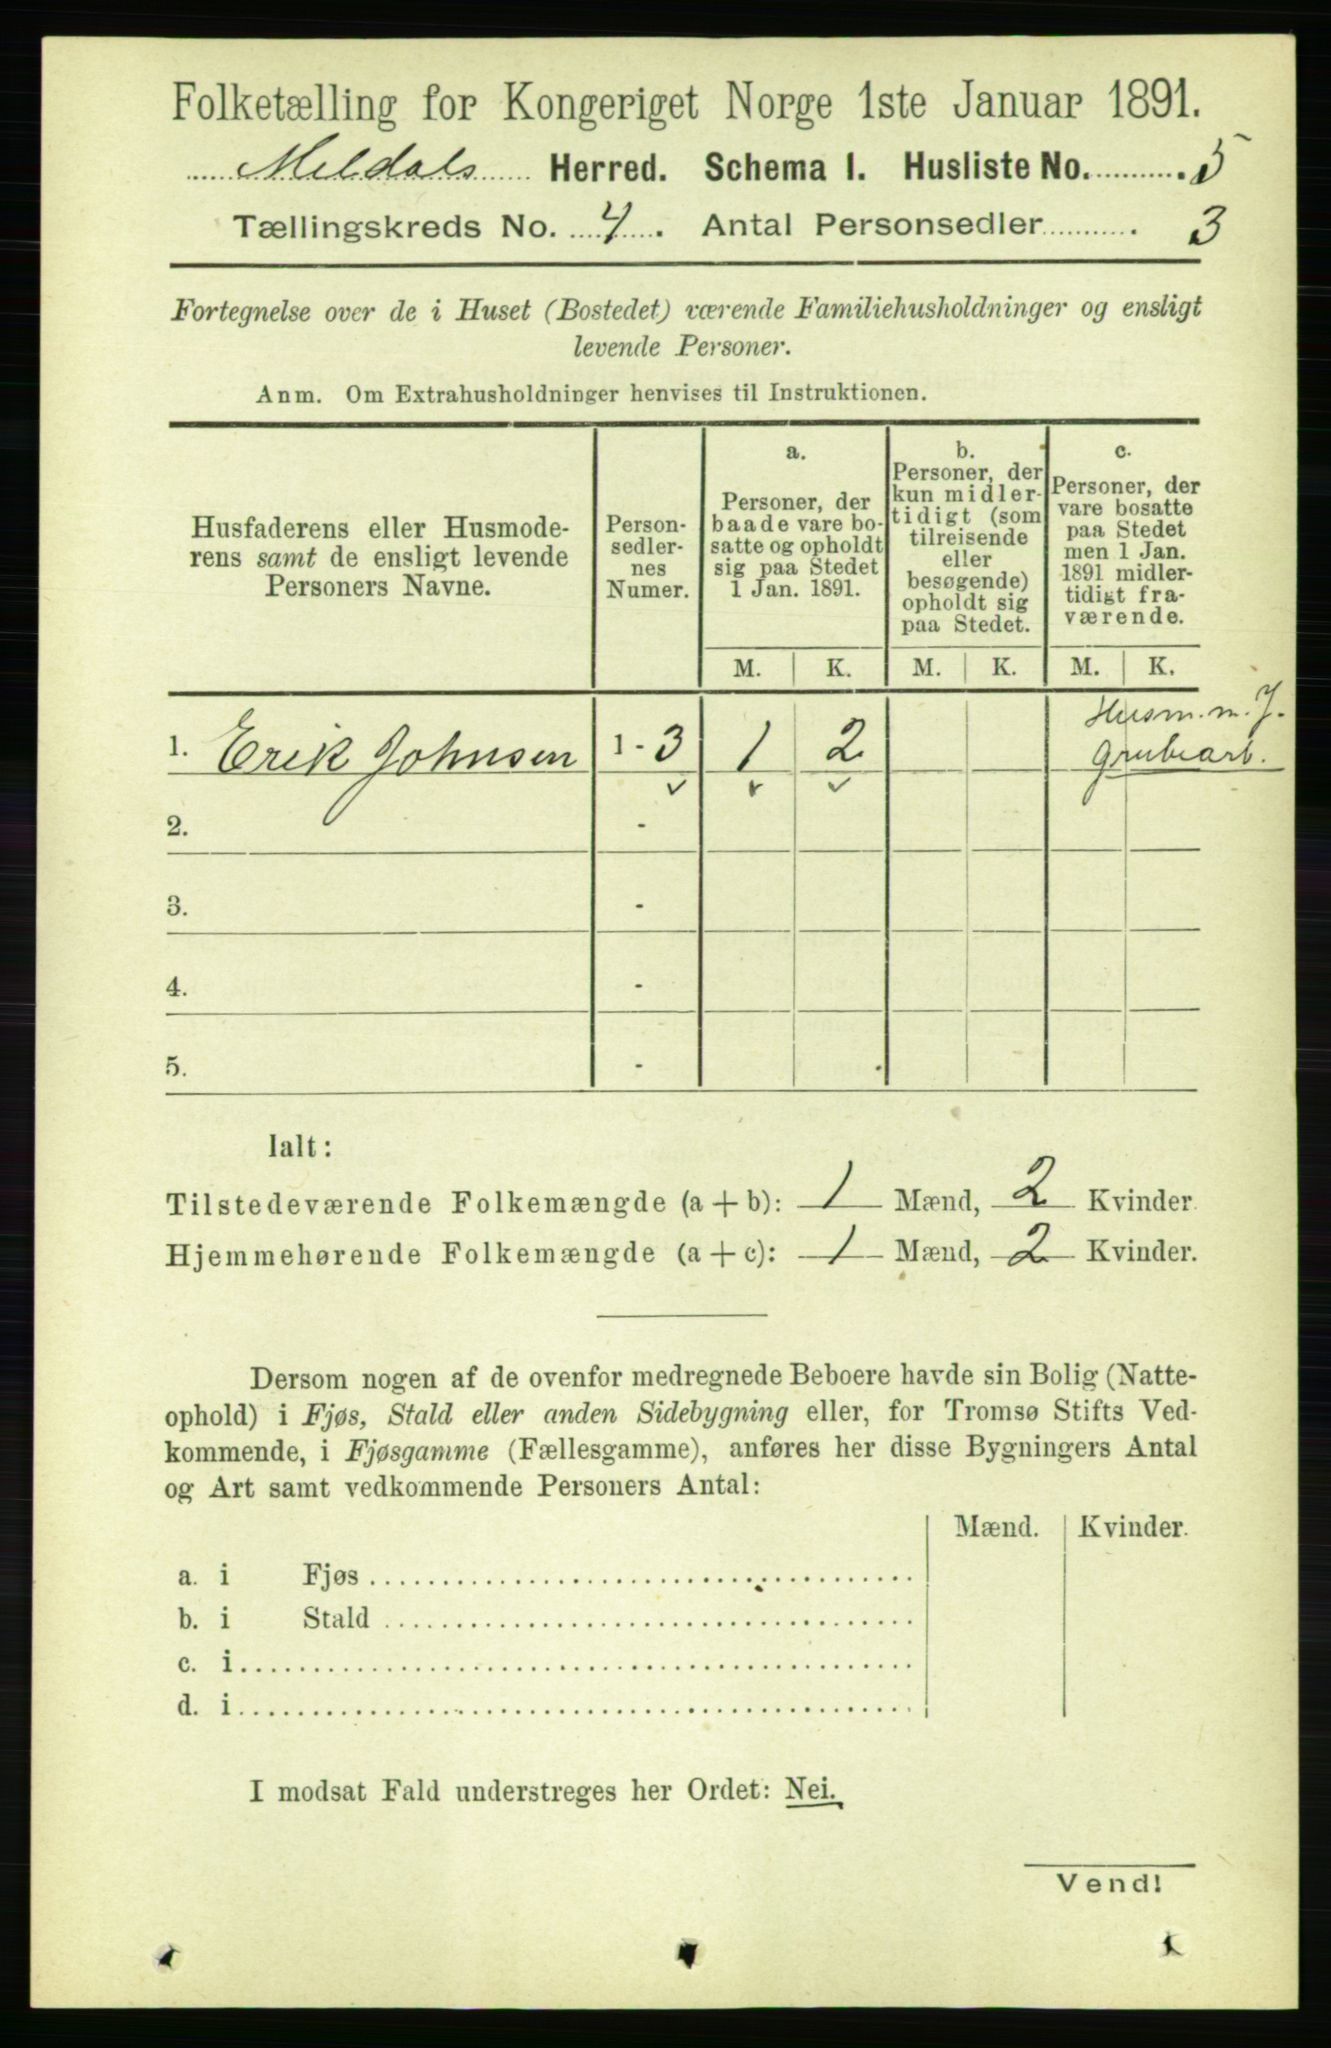 Folketælling for Kongeriget Norge 1ste Januar 1891.
Meldals Herred. Schema I. Husliste No. 5
Tællingskreds No. 4. Antal Personsedler 3
Fortegnelse over de i Huset (Bostedet) værende Familiehusholdninger og ensligt
levende Personer.
Anm. Om Extrahusholdninger henvises til Instruktionen.
Husfaderens eller Husmode-
rens samt de ensligt levende
Personers Navne.
Person-
sedler-
nes
Numer.
a.
Personer, der
baade vare bo-
satte og opholdt
sig paa Stedet
1 Jan. 1891.
b.
Personer, der
kun midler-
tidigt (som
tilreisende
eller
besøgende)
opholdt sig
paa Stedet.
c.
Personer, der
vare bosatte
paa Stedet
men 1 Jan.
1891 midler-
tidigt fra-
værende.
M. K. M. K. M. K.
Husm. m. J.
1. Erik Johnsen 1 - 3 1 2 Grubearb.
2. -
3. -
4. -
5. -
Ialt:
Tilstedeværende Folkemængde (a + b): 1 Mænd, 2 Kvinder.
Hjemmehørende Folkemængde (a + c): 1 Mænd, 2 Kvinder.
Dersom nogen af de ovenfor medregnede Beboere havde sin Bolig (Natte-
ophold) i Fjøs, Stald eller anden Sidebygning eller, for Tromsø Stifts Ved-
kommende, i Fjøsgamme (Fællesgamme), anføres her disse Bygningers Antal
og Art samt vedkommende Personers Antal:
Mænd. Kvinder.
a. i Fjøs
b. i Stald
c. i
d. i
I modsat Fald understreges her Ordet: Nei.
Vend!